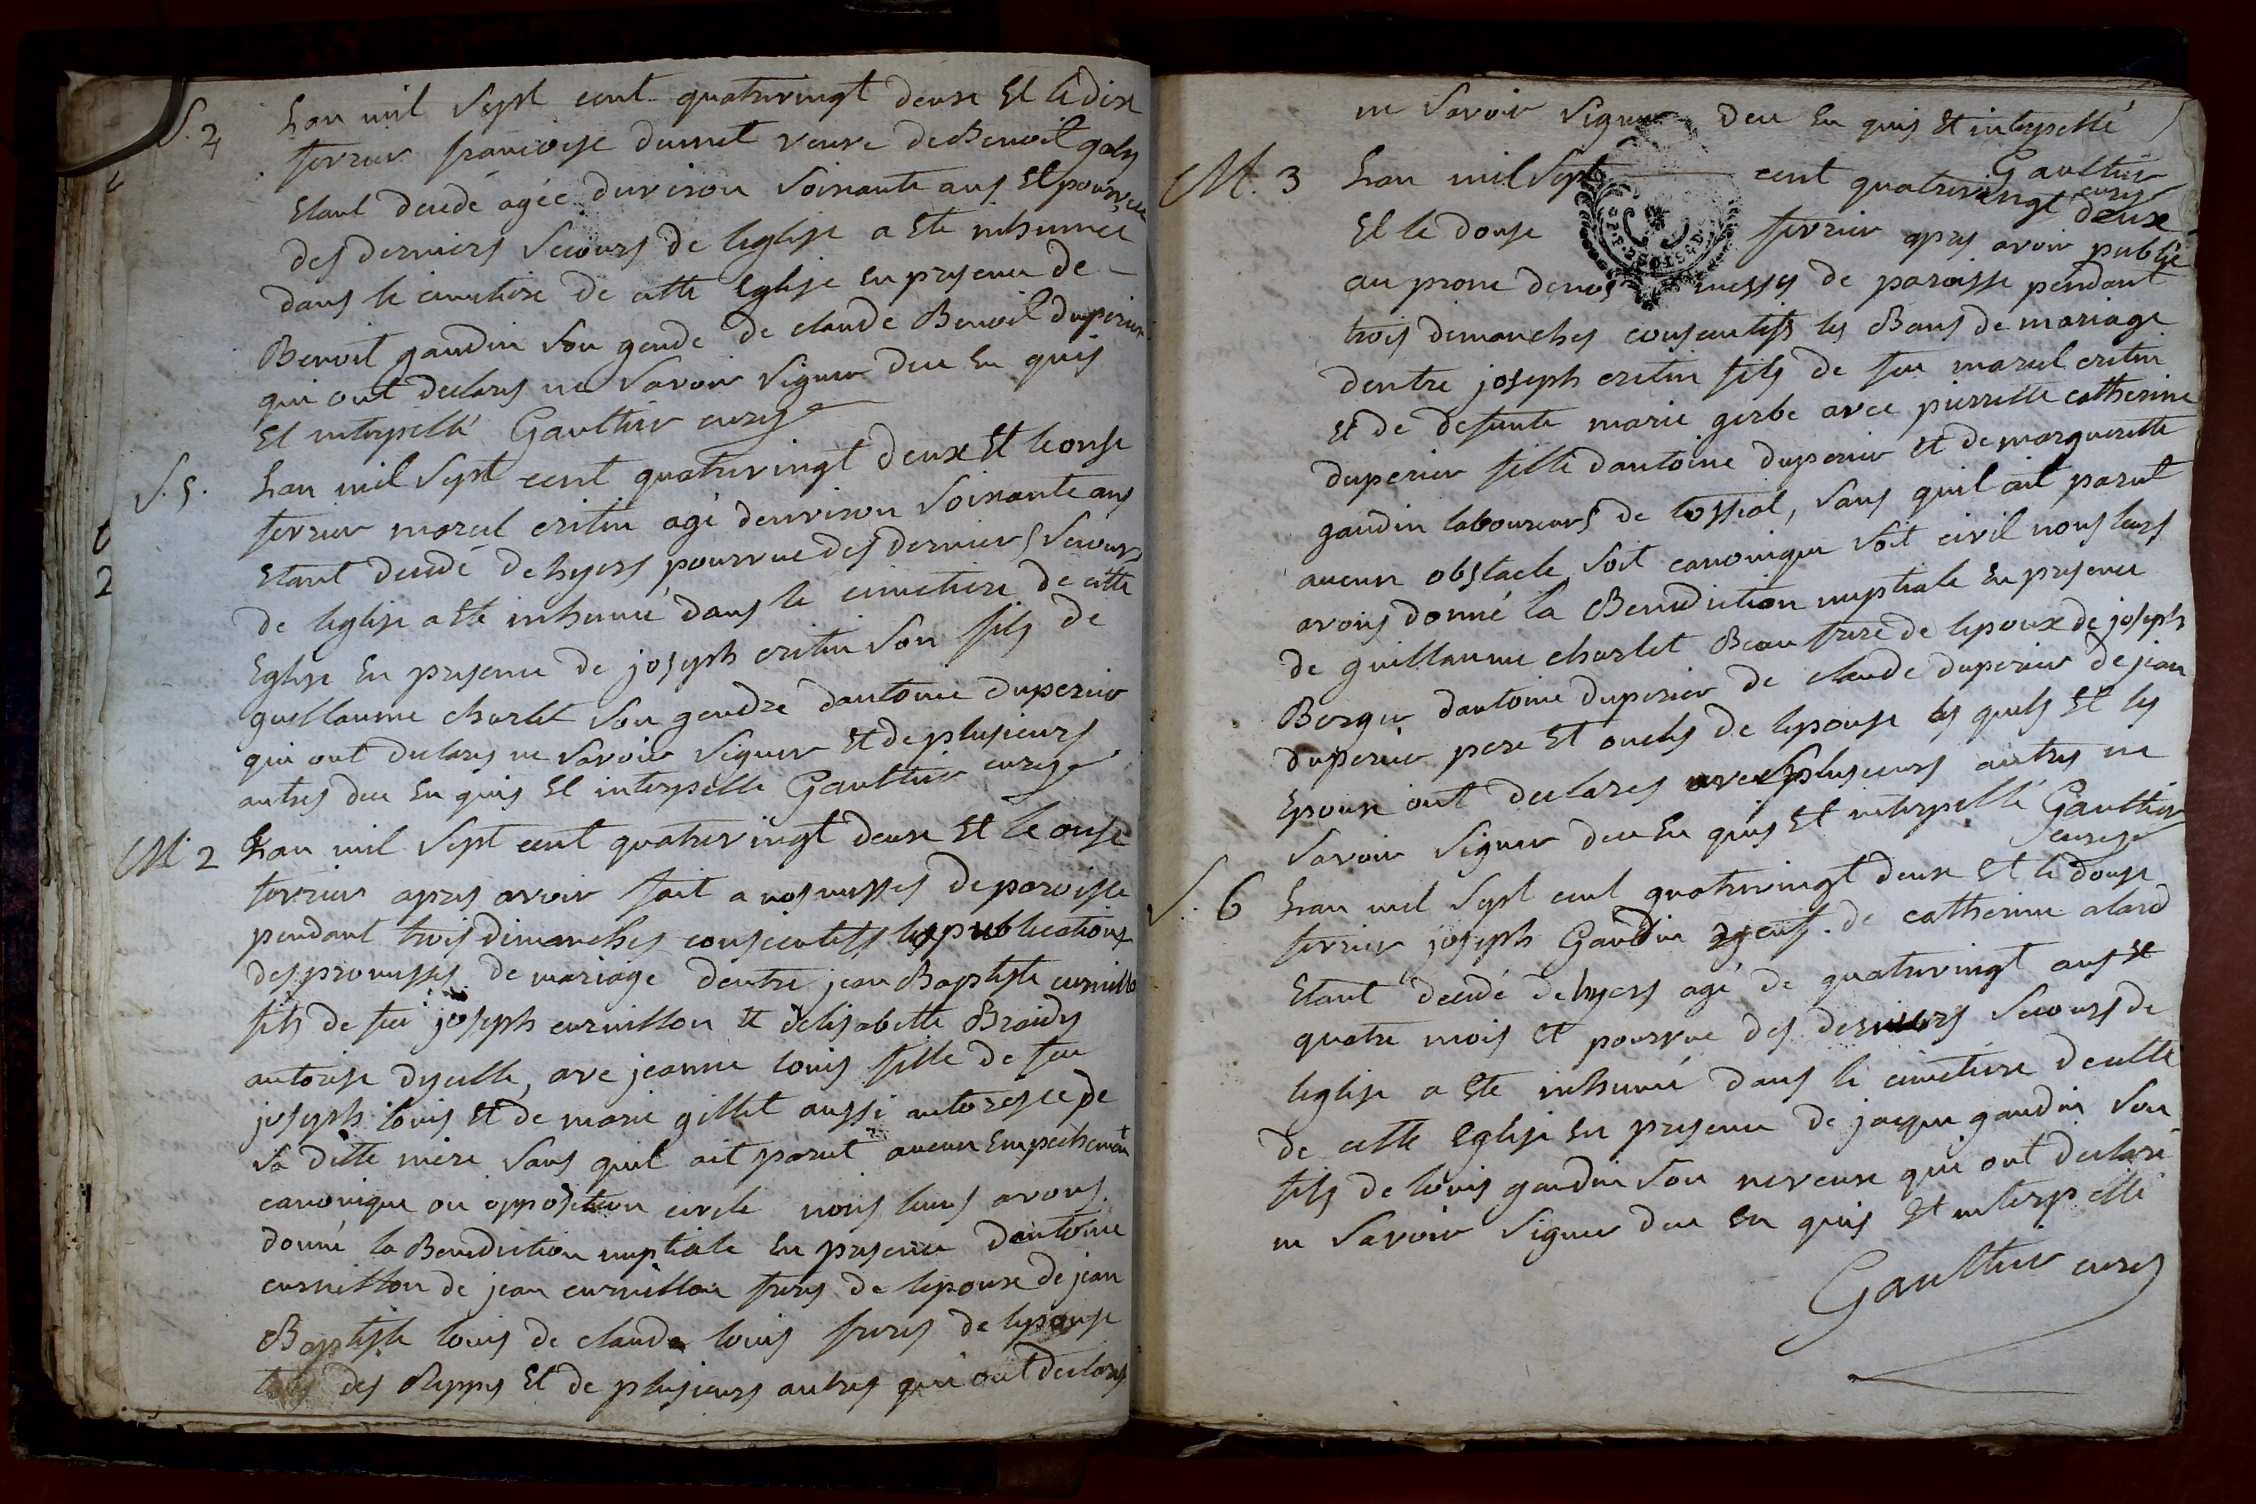 S. 4
Lan mil Sept cent quatrevingt deux Et le dix
fevrier francoise dumet veuve de Benoit galy
Etant decedé agée denviron Soixante ans Et pourvue
des derniers Secours de leglise a Eté inhumée
dans le cimetiere de cette Eglise en presence de
Benoit gaudin Son gendre de claude Benoit duperier
qui ont declares ne Savoir Signer deu En quis
Et interpellé Gaulthier curez
S. 5.
Lan mil Sept cent quatrevingt deux Et le onse
fevrier marcel cretin agé denviron Soixante ans
Etant decedé de hyers pourvue des derniers Secours
de leglise a Eté inhumé dans le cimetiere de cette
Eglise En presence de joseph cretin Son fils de
guillaume charlet Son gendre dantoine duperier
qui ont declares ne Savoir Signer Et de plusieurs
autres deu En quis Et interpelle Gaulthier curez
M. 2
Lan mil Sept cent quatrevingt deux Et le onse
fevrier apres avoir fait a nos messes de paroisse
pendant trois dimanches consecutifs les publications
des promesses de mariage dentre jean Baptiste curnillon
fils de feu joseph curnillon Et delisabette Brandy
autorise dycelle, ave jeanne louis fille de feu
joseph louis Et de marie gillet aussi autorisee de
Sa ditte mere Sans quil ait parut aucun Empechemant
canonique ou opposition civile nous leurs avons
donné la Benediction nuptiale En presence dantoine
curnillon de jean curnillon freres de lepoux de jean
Baptiste louis de claude louis freres de lepouse
tous des Rippes Et de plusieurs autres qui ont declares
ne Savoir Signer deu En quis Et interpellé
Gaulthier
curez
M. 3
Lan mil Sept cent quatrevingt deux
Et le douse fevrier apres avoir publié
au prone de nos messes de paroisse pendant
trois dimanches consecutifs les Bans de mariage
dentre joseph cretin fils de feu marcel cretin
Et de defunte marie gerbe avec pierrette catherine
duperier fille dantoine duperier Et de marguerette
gaudin laboureurs de tossiat, Sans quil ait parut
aucun obstacle Soit canonique Soit civil nous leurs
avons donné la Benediction nuptiale En presence
de guillaume charlet Beau frere de lepoux de joseph
Berger dantoine duperier de claude duperier de jean
duperier pere Et oncles de lepouse les quels Et les
Epoux ont declares avec plusieurs autres ne
Savoir Signer deu En quis Et interpellé Gaulthier
curez
S. 6
Lan mil Sept cent quatrevingt deux Et le douse
fevrier joseph Gaudin veuf de catherine alard
Etant decedé de hyers agé de quatrevingt ans Et
quatre mois Et pourvue des derniers Secours de
leglise a Eté inhumé dans le cimetiere de cette
de cette Eglise En presence de jacque gaudin Son
fils de louis gaudin Son neveux qui ont declaré
ne Savoir Signer deu En quis Et interpellé
Gaulthier curez